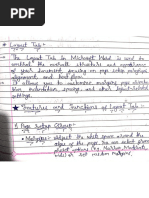 Layout Tab :-
The Layout Tab in Microsoft Word is used to
control the overall structure and appearance
of your document focusing on page setup paragraph
alignment, and text flow.
It allows you to customize margins, page
line, indentation spacing, and other layout-related
settings.
Features and Functions of Layout Tab :-
1. Page Setup Group :-
Margins: Adjust the white space around the
edges of the page. You can select given
options (i.e. Normal, Moderate,
Wide) or set custom margins.